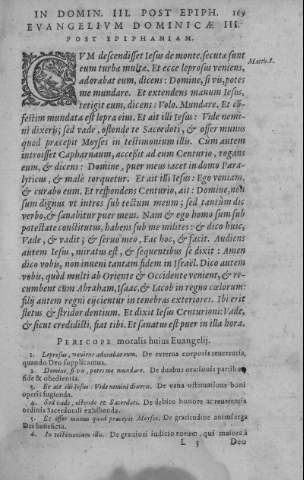 IN DOMIN. III. POST EPIPH. 169
EVANGELIVM DOMINICÆ III.
POST EPIPHANIAM.
CVM descendisset Iesus de monte, secutæ sunt
eum turbæ multæ. Et ecce leprosus veniens, Matth.8.
adorabat eum, dicens: Domine, si vis, potes
me mundare. Et extendens manum Iesus,
tetigit eum, dicens: Volo. Mundare. Et confestim
mundata est lepra eius. Et ait illi Iesus: Vide nemini
dixeris; sed vade, ostende te Sacerdoti, & offer munus
quod præcepit Moyses in testimonium illis. Cum autem
introisset Capharnaum, accessit ad eum Centurio, rogans
eum, & dicens: Domine, puer meus iacet in domo Paralyticus,
& malè torquetur. Et ait illi Iesus: Ego veniam,
& curabo eum. Et respondens Centurio, ait: Domine, non
sum dignus vt intres sub tectum meum; sed tantùm dic
verbo, & sanabitur puer meus. Nam & ego homo sum sub
potestate constitutus, habens sub me milites: & dico huic,
Vade, & vadit; & seruo meo, Fac hoc, & facit. Audiens
autem Iesus, miratus est, & sequentibus se dixit: Amen
dico vobis, non inueni tantam fidem in Israel. Dico autem
vobis, quòd multi ab Oriente & Occidente venient, & recumbent
cum Abraham, Isaac, & Iacob in regno cœlorum:
filij autem regni eijcientur in tenebras exteriores. Ibi erit
fletus & stridor dentium. Et dixit Iesus Centurioni: Vade,
& sicut credidisti, fiat tibi. Et sanatus est puer in illa hora.
PERICOPE moralis huius Euangelij.
1. Leprosus, veniens adorabat eum. De externa corporis reuerentia,
quando Deo supplicamus.
2. Domine, si vis, potes me mundare. De duabus orationis partibus
fide & obedientia.
3. Et ait illi Iesus: Vide nemini dixeris. De vana ostentatione boni
operis fugienda.
4. Sed vade, ostende te Sacerdoti. De debito honore ac reuerentia
ordinis Sacerdotali exhibenda.
5. Et offer munus quod præcepit Moyses. De gratitudine animi erga
Dei beneficia.
6. In testimonium illis. De grauiori iudicio eorum, qui maiora à
L 5 Deo